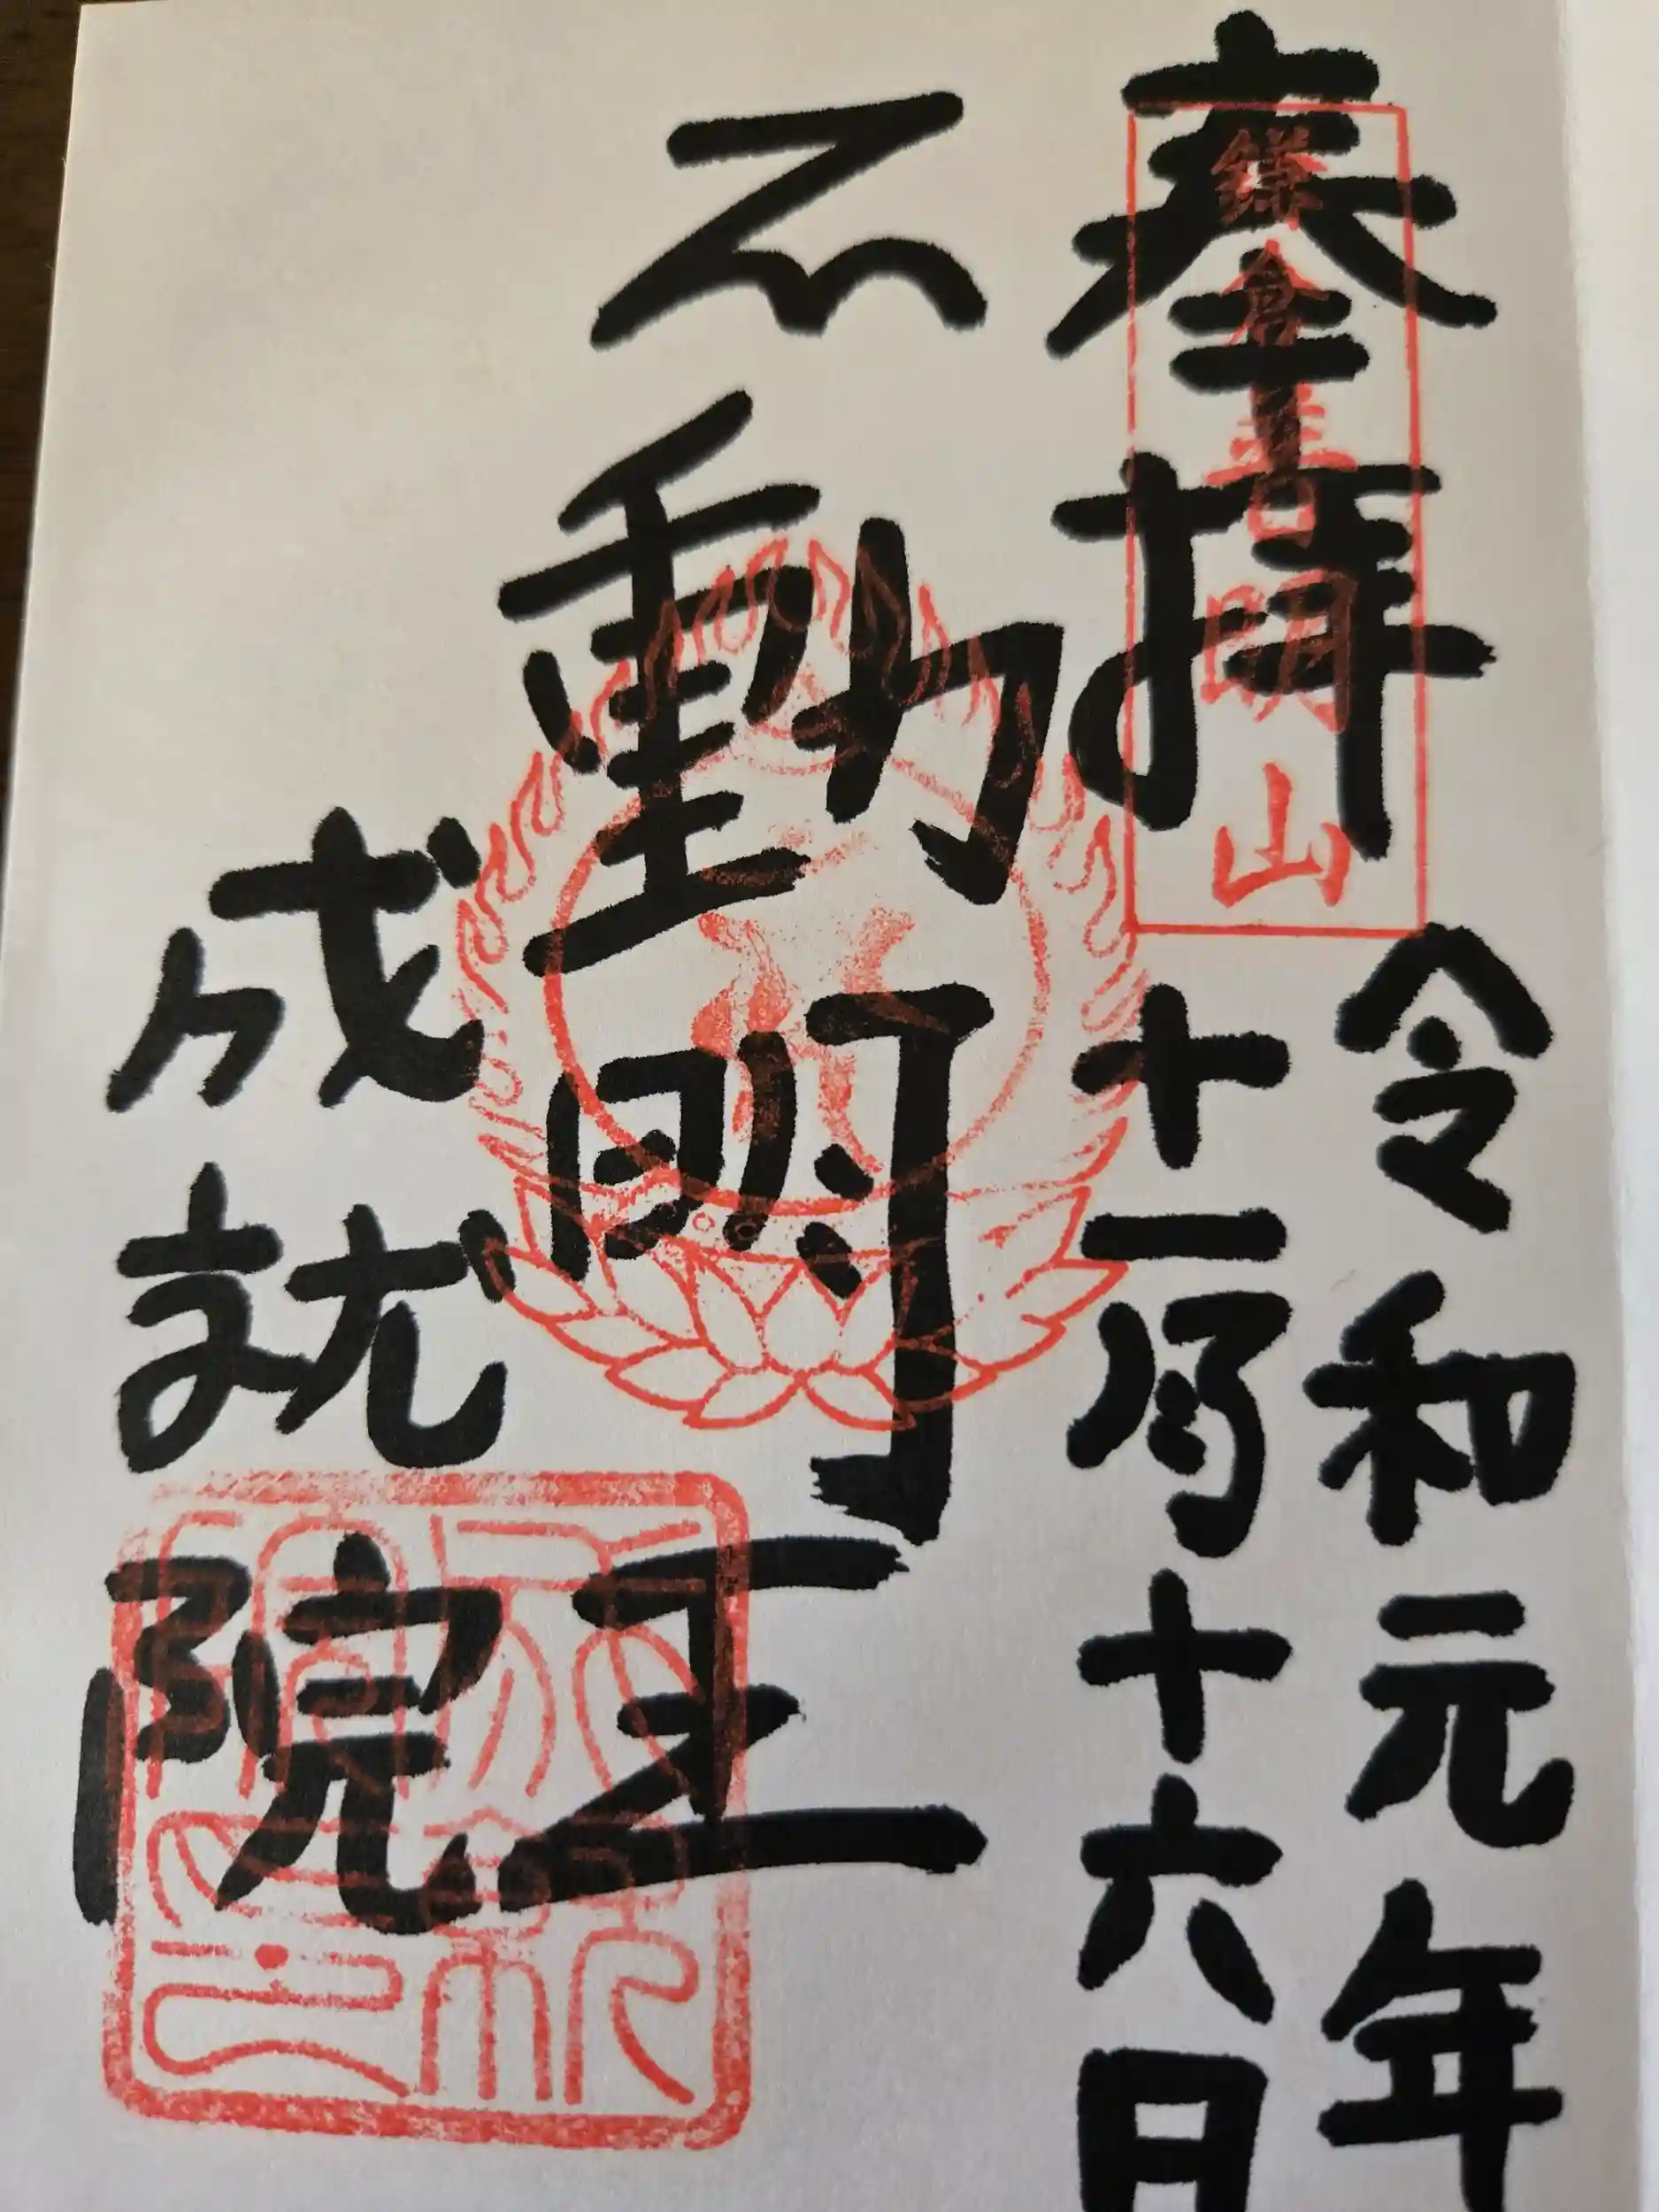 奉拝
鎌倉普明山
令和元年
十一月十六日
不動明王
成就院